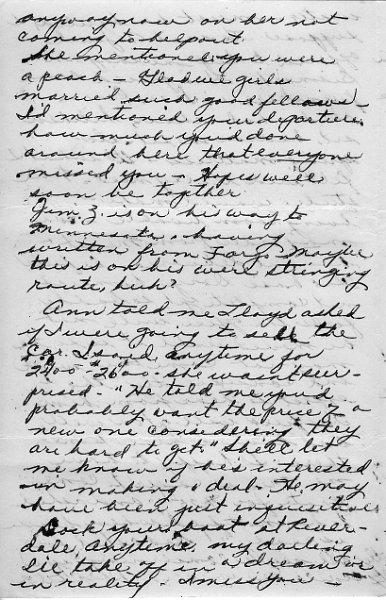 anyway now on her not
coming to help out
She mentioned you were
a peach - Glad we girls
married such good fellows -
I'd mentioned your departure
how much you'd done
around here that everyone
missed you - Hope we'll
soon be together
Jim Z. is on his way to
Minnesota, having
written from Fargo. Maybe
this is on his wire stringing
route, huh?
Ann told me Lloyd asked
if I were going to sell the
car. I said, anytime for
2400 - 2600 - she wasn't sur-
prised - "He told me you'd
probably want the price of a
new one considering they
are hard to get." She'll let
me know if he's interested
in making a deal. He may
have been just inquisitive
Dock your boat at River-
dale, anytime, my darling
I'll take off in a dream or
in reality - I miss you -